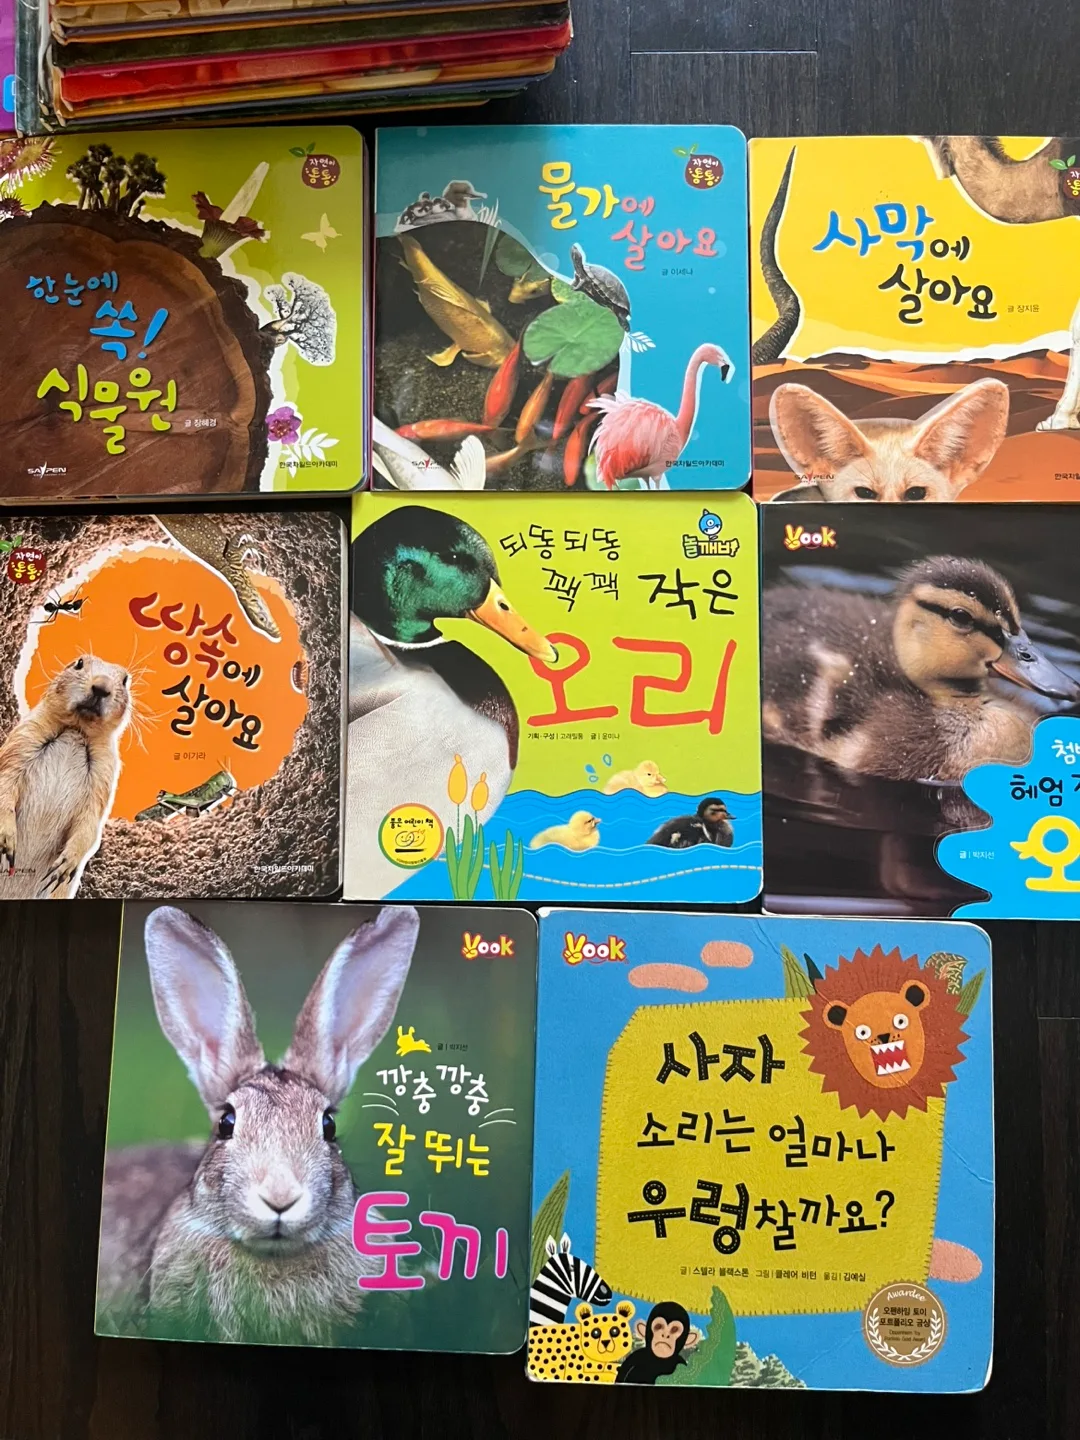 자연이
통통
한눈에
쏙!
식물원
글 장혜경
SAYPEN
한국차일드아카데미
자연이
통통
물가에
살아요
글 이세나
한국차일드아카데미
사막에
살아요
글 장지윤
SAYPEN
자연이
통통
땅속에
살아요
글 이기라
한국차일드아카데미
놀깨비
뒤뚱뒤뚱
꽥꽥 작은
오리
기획·구성 | 고래입동 글 | 윤미나
좋은 어린이 책
Yook
글 | 박지선
Yook
글 | 박지선
깡충깡충
잘 뛰는
토끼
Yook
사자
소리는 얼마나
우렁찰까요?
글 | 스텔라 블랙스톤 그림 | 클레어 비턴 옮김 | 김예실
Awardee
오펜하임 토이
포트폴리오 금상